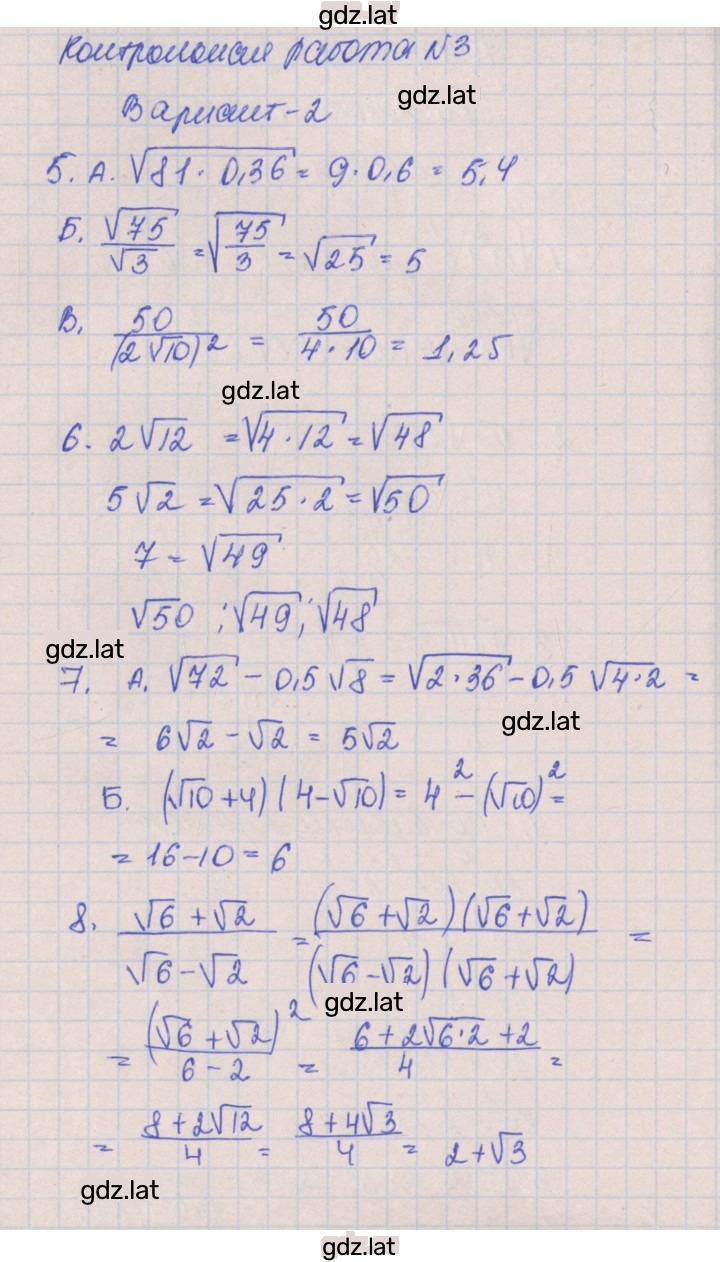 gdz.lat
Контрольная работа №3
Вариант-2
gdz.lat
5. А. √81·0,36 = 9·0,6 = 5,4
Б. √75/√3 = √75/3 = √25 = 5
В. 50/(2√10)² = 50/4·10 = 1,25
gdz.lat
6. 2√12 = √4·12 = √48
5√2 = √25·2 = √50
7 = √49
√50; √49; √48
gdz.lat
7. А. √72 - 0,5√8 = √2·36 - 0,5√4·2 =
gdz.lat
= 6√2 - √2 = 5√2
Б. (√10+4)(4-√10) = 4² - (√10)² =
= 16-10 = 6
8. √6+√2/√6-√2 = (√6+√2)(√6+√2)/(√6-√2)(√6+√2) =
gdz.lat
= (√6+√2)²/6-2 = 6+2√6·2+2/4 =
= 8+2√12/4 = 8+4√3/4 = 2+√3
gdz.lat
gdz.lat